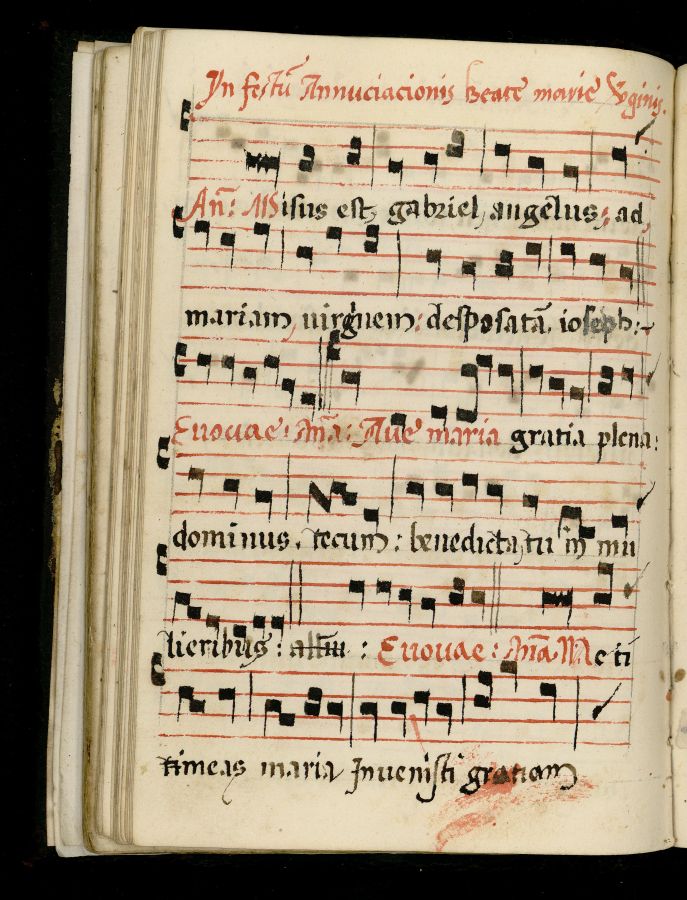 In festū Annuciacionis beate marie v̄ginis.
An̄: Misus est, gabriel, angelus; ad,
mariam, uirginem: desposatā, ioseph:~
Euouae: An̄a: Aue maria gratia plena:
dominus, tecum: benedicta, tu in mu
lieribus: : Euouae: An̄a Ne ti
timeas maria Inuenisti gratiam